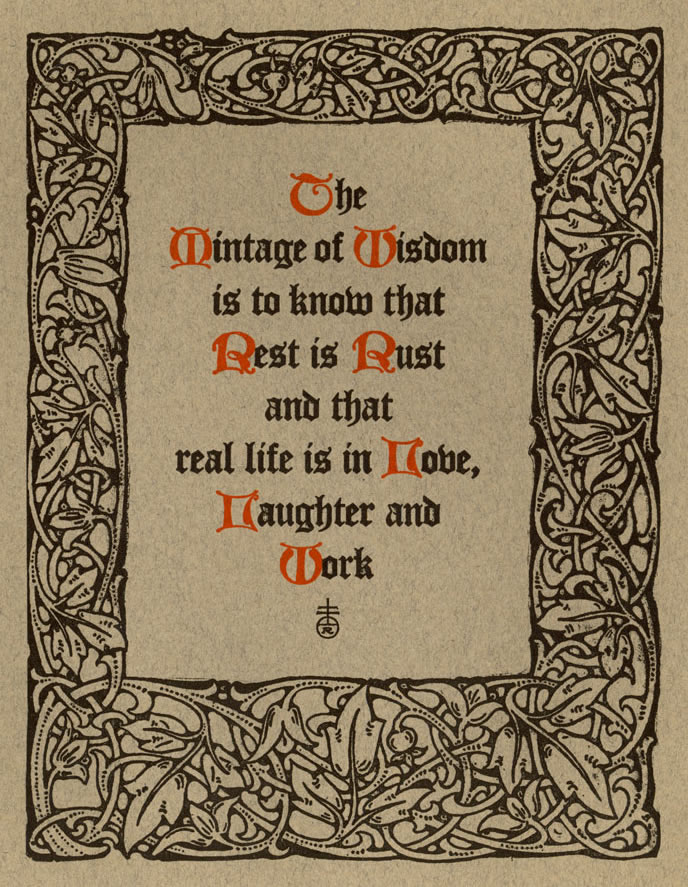 The
Mintage of Wisdom
is to know that
Rest is Rust
and that
real life is in Love,
Laughter and
Work
R